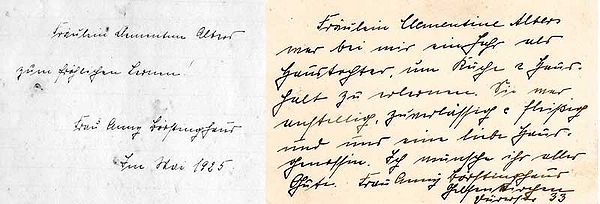 Fräulein Clementine Albers
zum fröhlichen Lernen!
Frau Anny Börstinghaus
Im Mai 1925.
Fräulein Clementine Albers
war bei mir ein Jahr als
Haustochter, um Küche & Haus-
halt zu erlernen. Sie war
anstellig, zuverlässig & fleißig
und uns eine liebe Haus-
genossin. Ich wünsche ihr alles
Gute. Frau Anny Börstinghaus
Gelsenkirchen
33